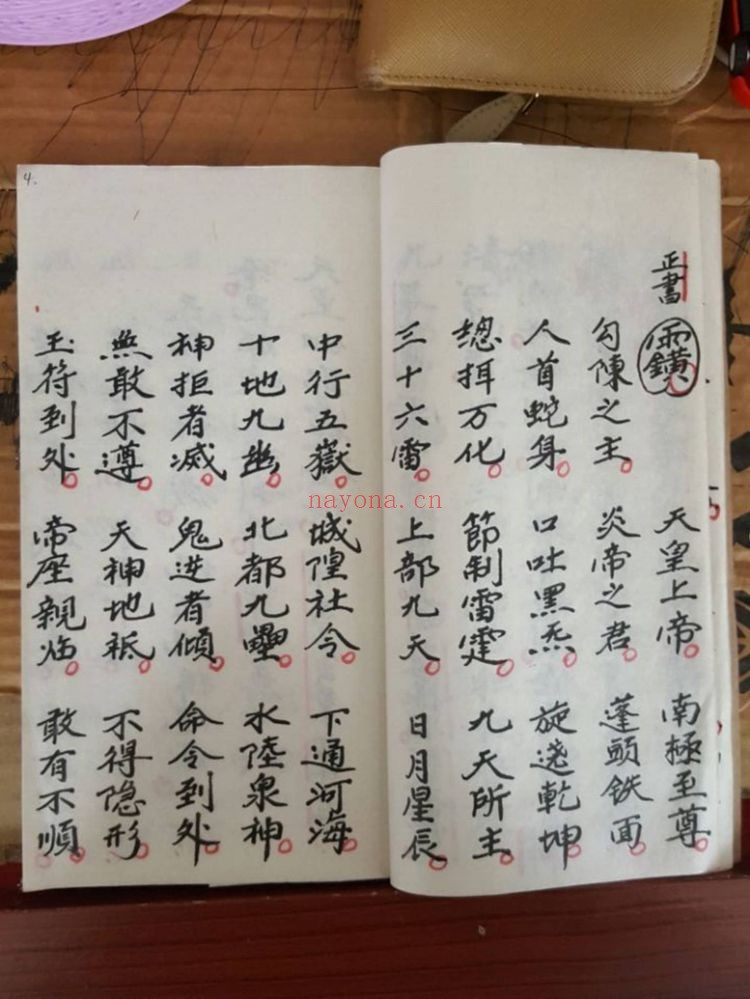 正書 天皇上帝。南極至尊。
勾陳之主。炎帝之君。蓬頭鉄面。
人首蛇身。口吐黑炁。旋遶乾坤。
万化。節制雷霆。九天所主。
三十六雷。上部九天。日月星辰。
中行五嶽。城隍社令。下通河海。
十地九幽。北都九壘。水陸泉神。
神拒者滅。鬼逆者傾。命令到处。
無敢不遵。天神地祇。不得隐形。
玉符到处。帝座親临。敢有不順。
4.
nayona.cn